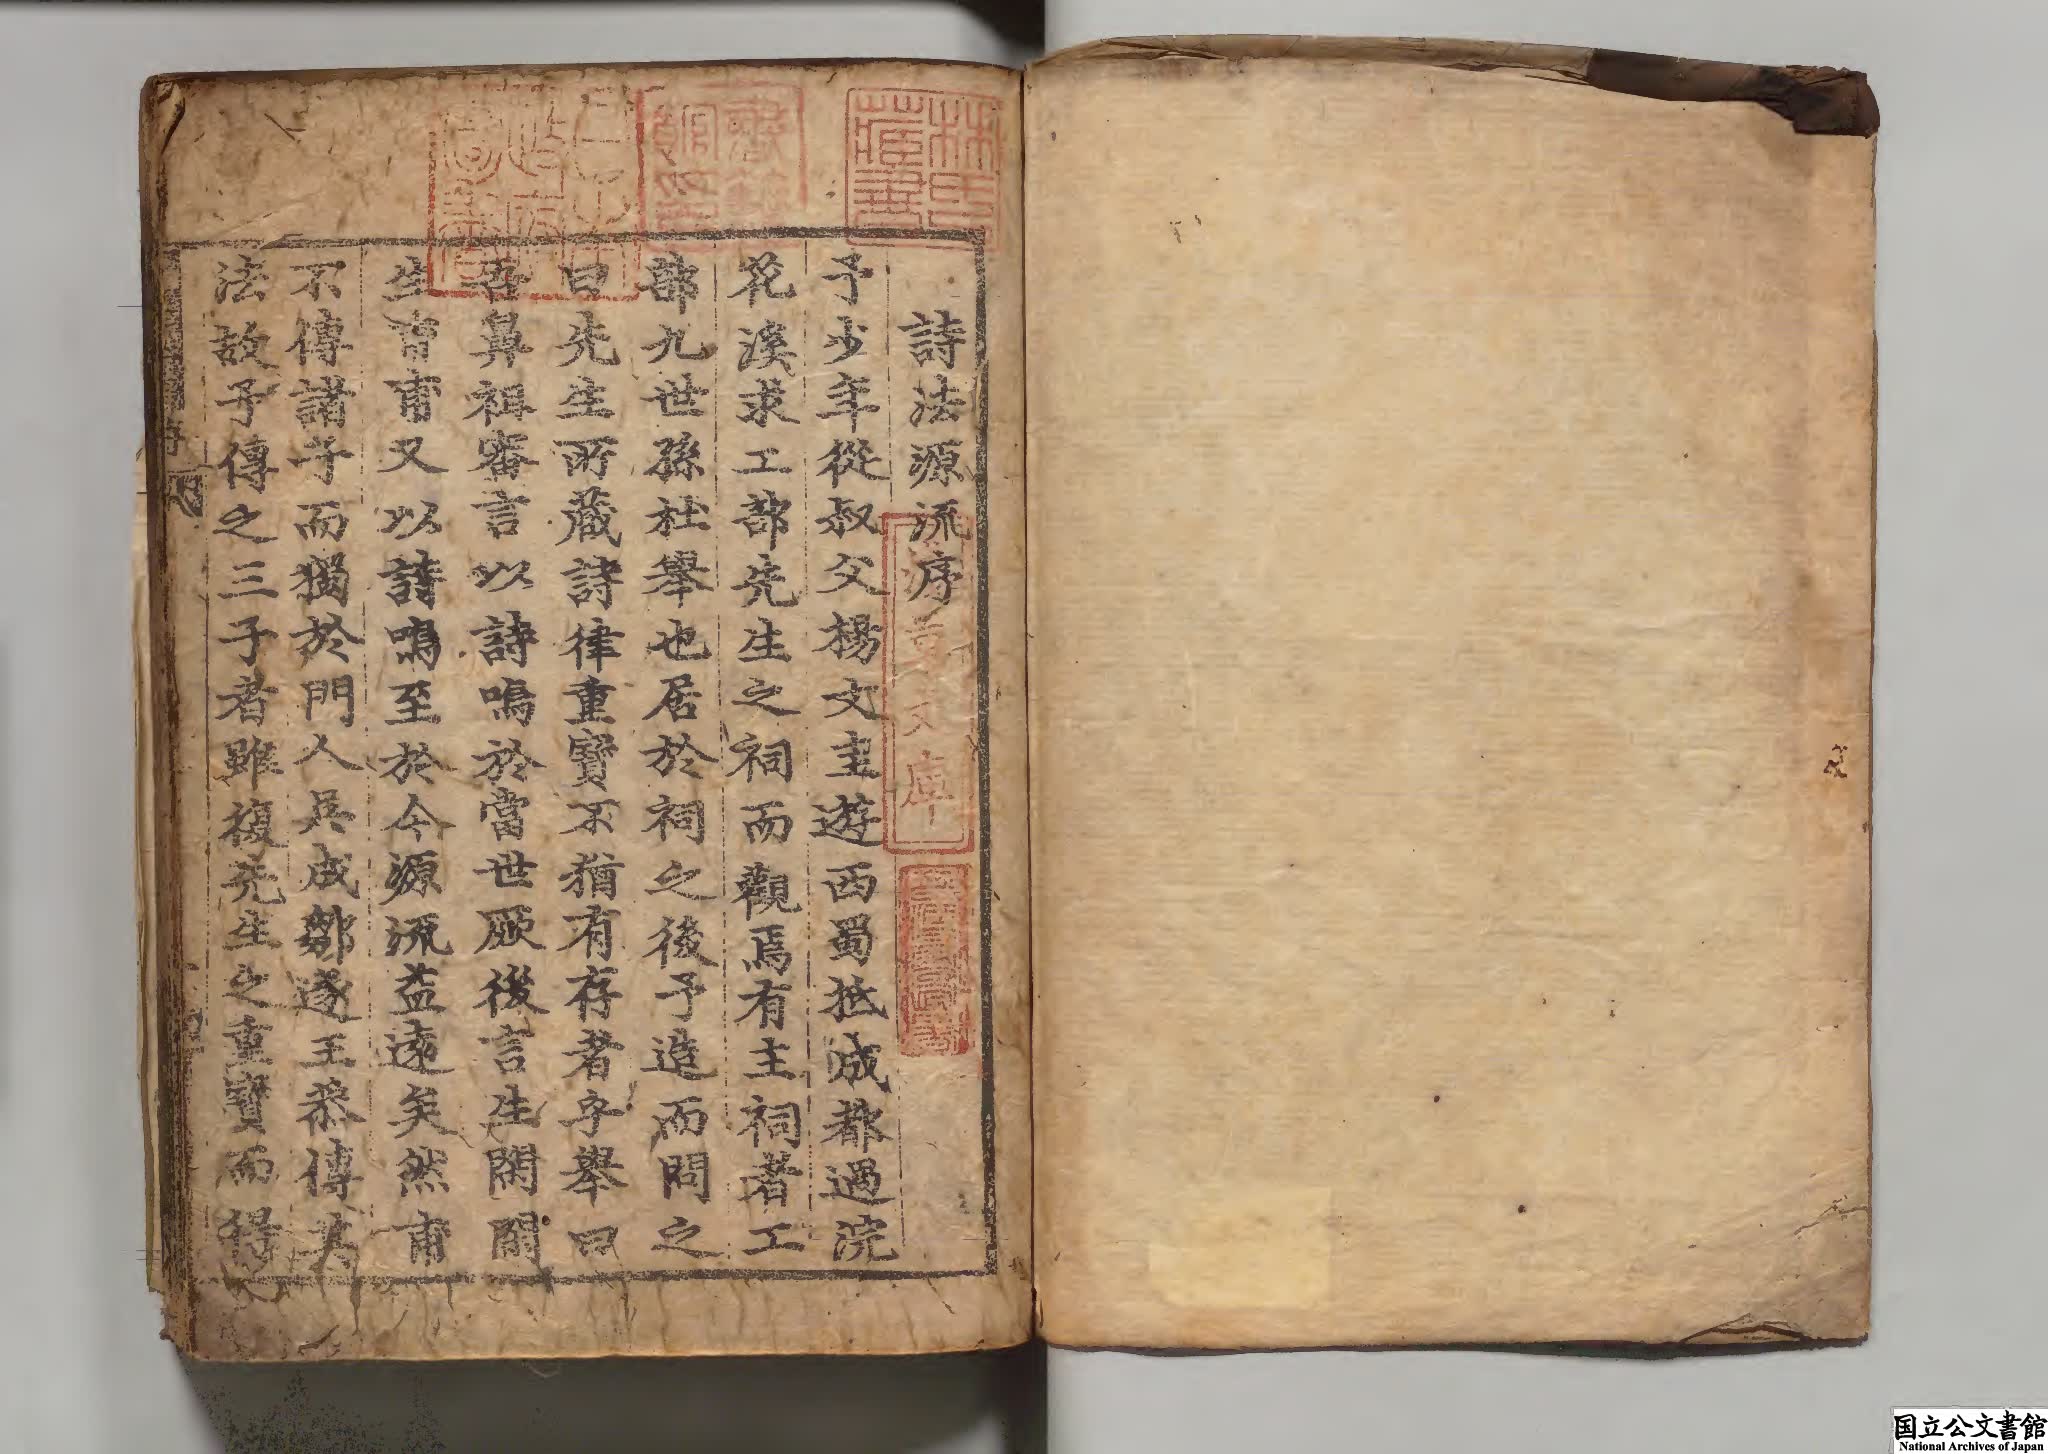 詩法源流序
予少年從叔父楊文圭遊西蜀抵成都過浣
花溪求工部先生之祠而觀焉有主祠者工
部九世孫杜舉也居於祠之後予造而問之
曰先生所藏詩律重寶不猶有存者乎舉曰
吾鼻祖審言以詩鳴於當世厥後言生閑閑
生甫甫又以詩鳴至於今源流益遠矣然甫
不傳諸子而獨於門人吳成鄒遂王恭傳其
法故予傳之三子者雖復先生之重寶而得
林氏藏書
日本政府圖書
国立公文書館
National Archives of Japan